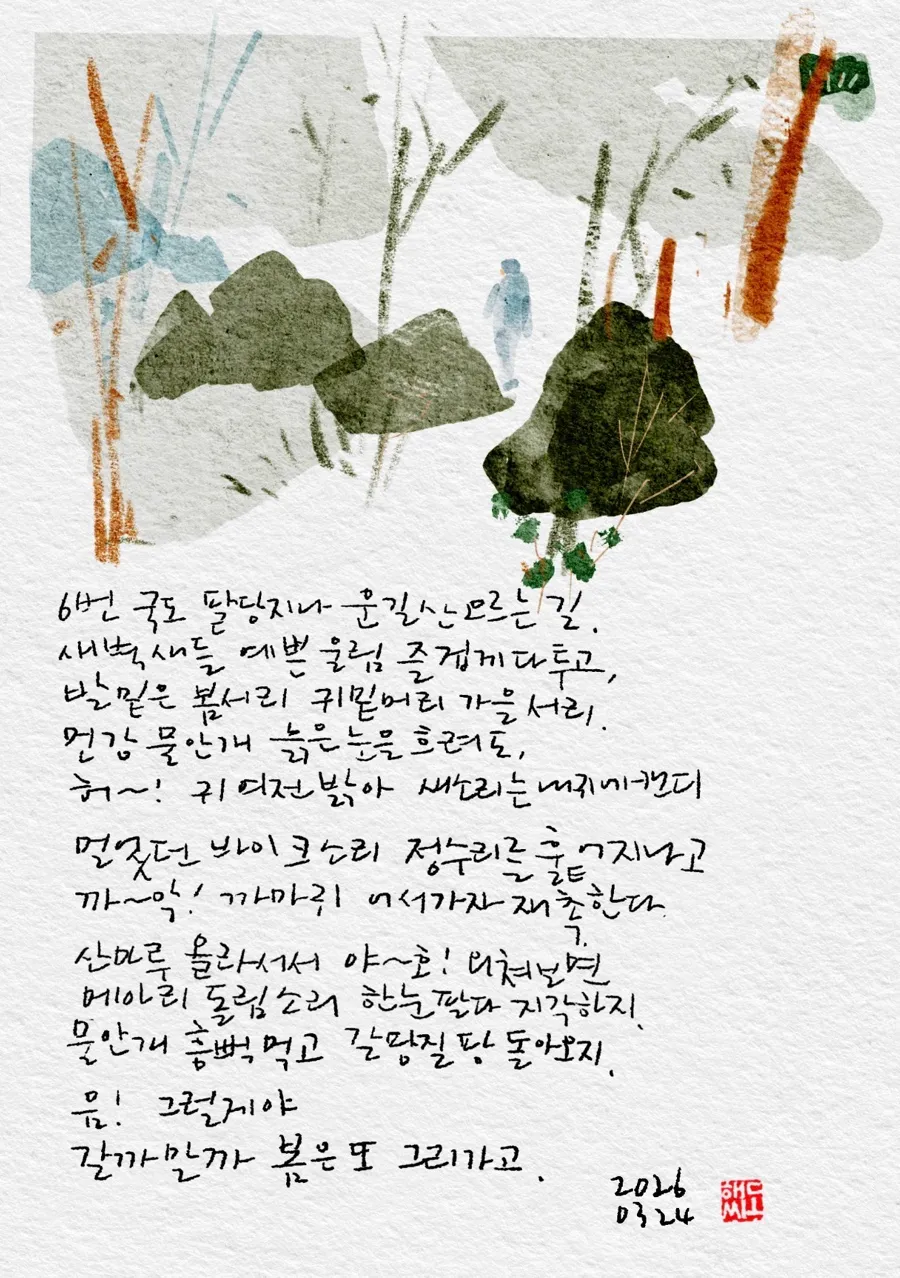 6번 국도 팔당지나 운길산 오르는 길.
새벽새들 예쁜 울림 즐겁게 다투고,
발밑은 봄서리 귀밑머리 가을 서리.
먼강 물안개 늙은 눈을 흐려도,
허~! 귀 여전 밝아 새소리는
멀었던 바이크소리 정수리를 훑어지나고
까~악! 까마귀 어서가자 재촉한다.
산마루 올라서서 야~호! 외쳐보면
메아리 돌림소리 한눈팔다 지각하지.
물안개 흠뻑먹고 갈팡질팡 돌아오지.
음! 그럴게야
갈까말까 봄은 또 그리가고.
2026
03 24